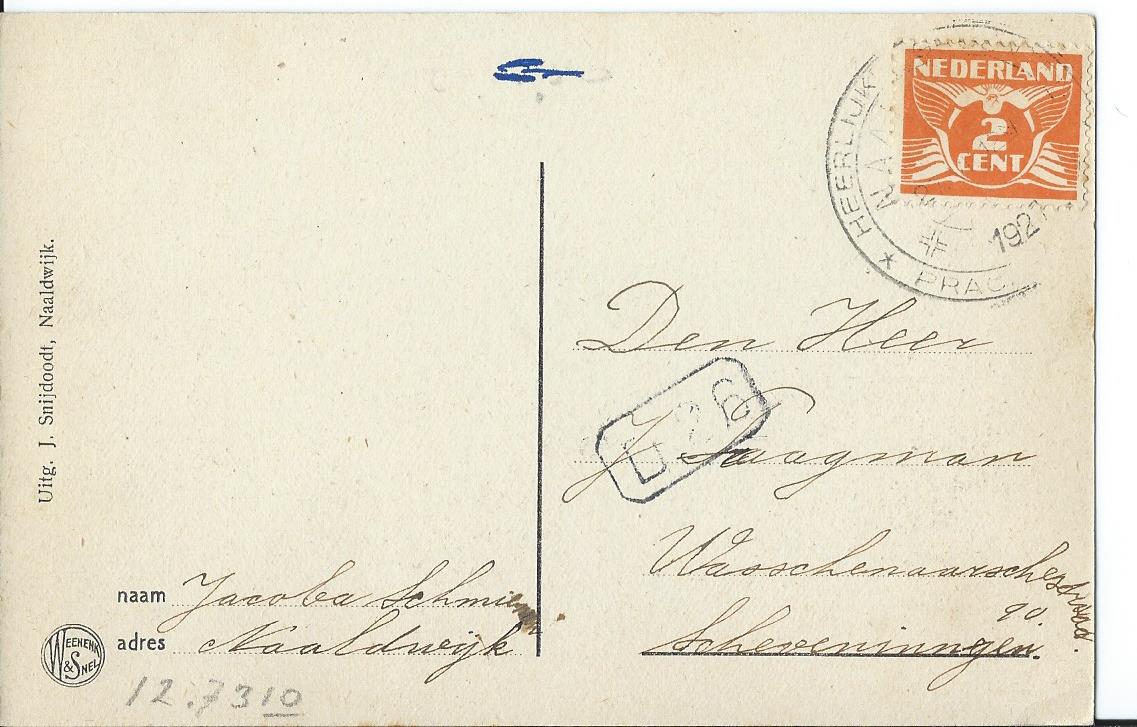 Uitg. J. Snijdoodt, Naaldwijk.
NEDERLAND
2
CENT
HEERLIJK
NAA
1927
* PRAC
Den Heer
D26
J. Haagman
Wasschenaarschestraat
90.
Scheveningen.
naam Jacoba
adres Naaldwijk
WEENENK
& SNEL
12.7310